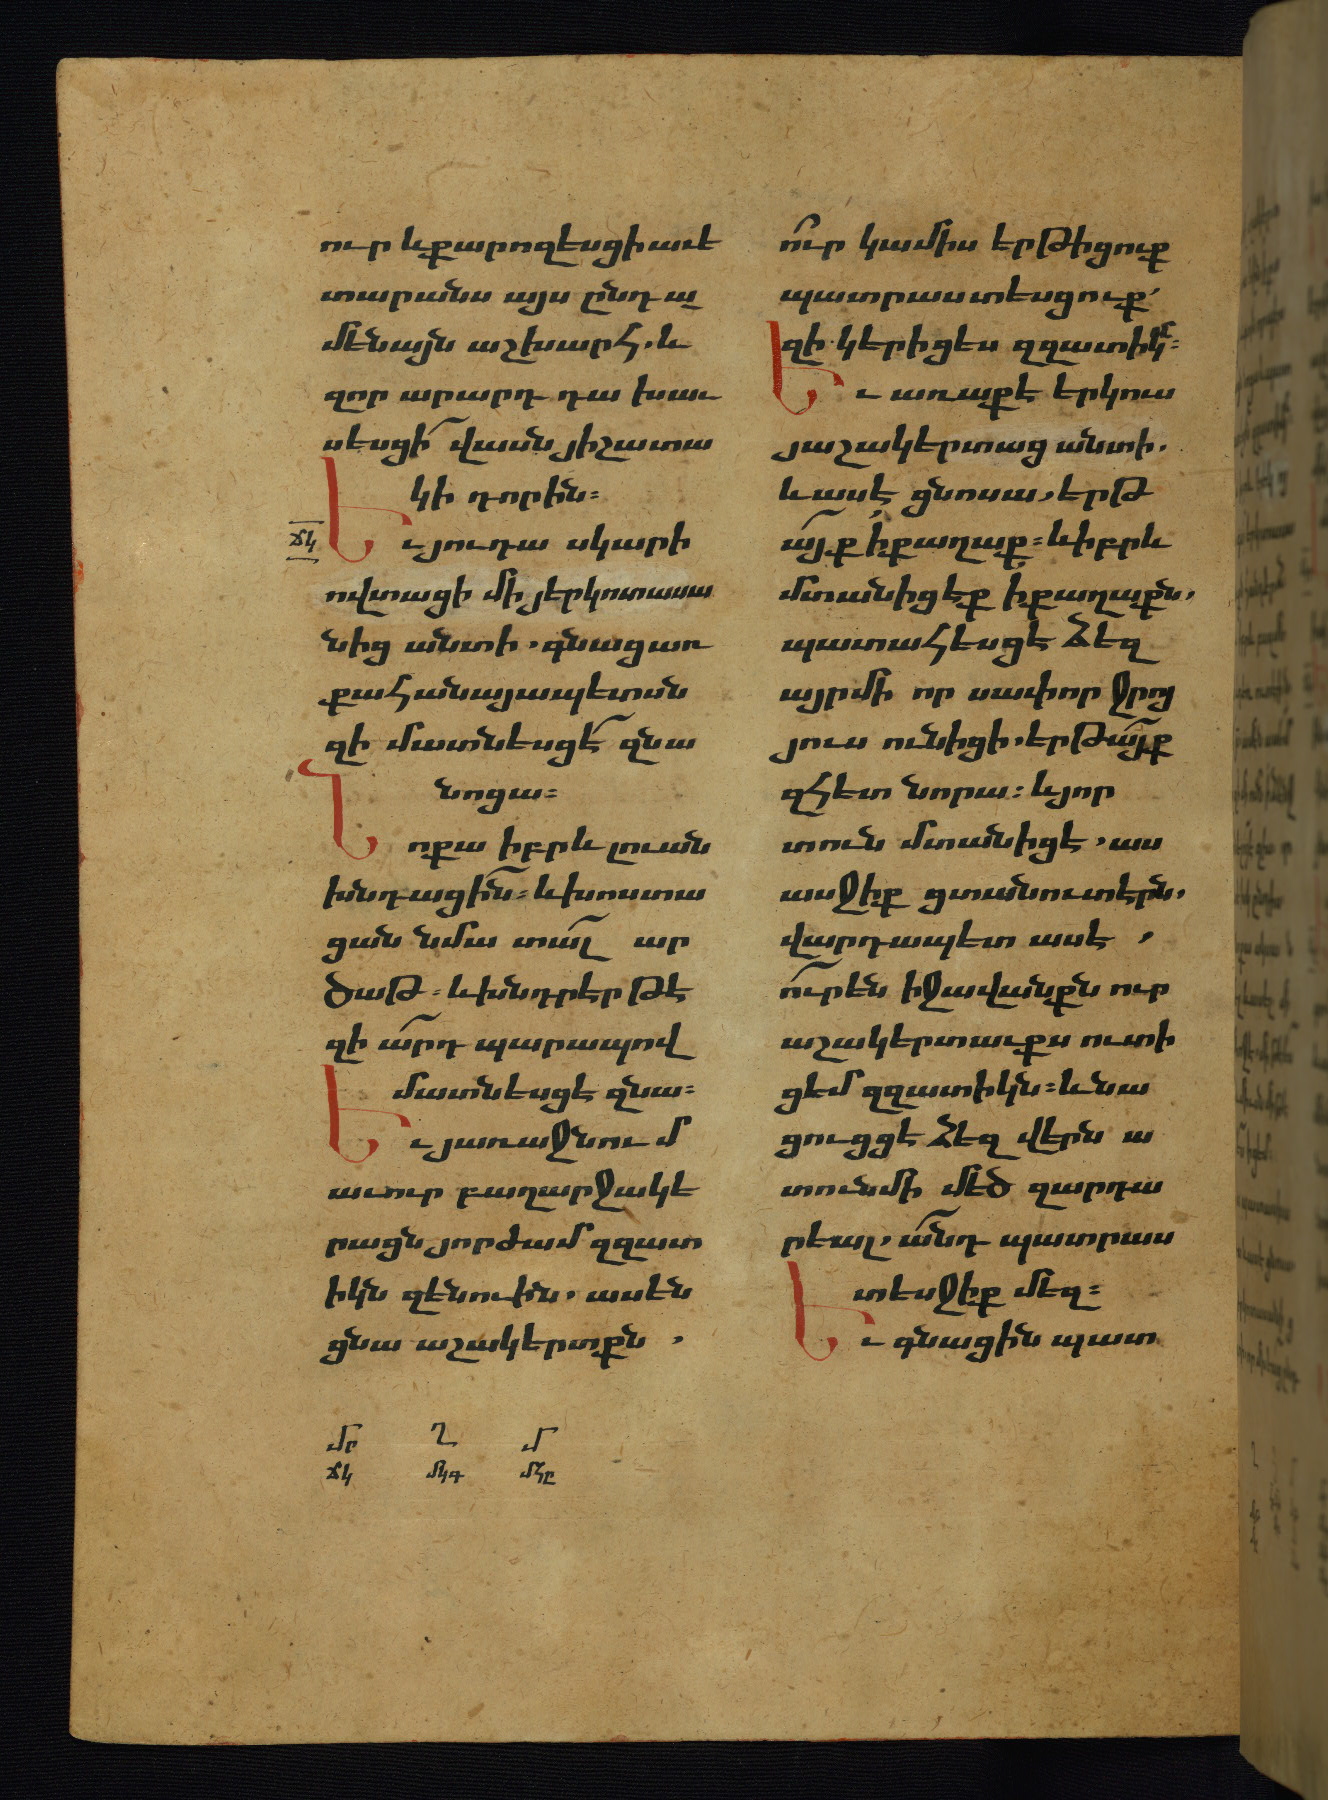 ուր և քարոզեսցի աւե
տարանս այս ընդ ա
մենայն աշխարհ. և
զոր արարդ դա խաւ
սեսցի՜ վասն յիշատա
կի դորին:
Եւ յուդա սկարի
ճկ
ովտացի մի յերկոտասա
նից անտի. գնաց առ
քահանայապետսն
զի մատնեսցէ՜ զնա
նոցա:
Նոքա իբրև լուան
խնդացի՜ն: և խոստա
ցան նմա տա՜լ ար
ծաթ: և խնդրէր թէ
զի ա՜րդ պարապով
մատնեսցէ զնա:
Եւ յառաջնում
աւուր բաղարջակե
րացն յորժամ զզատ
իկն զենուին. ասեն
ցնա աշակերտքն,
ո՜ւր կամիս երթիցուք
պատրաստեսցուք՝
զի կերիցես զզատիկն:
Եւ առաքէ երկուս
յաշակերտաց անտի.
և ասէ ցնոսա, երթ
ա՜յք ի քաղաք: և իբրև
մտանիցէք ի քաղաքն,
պատահեսցէ ձեզ
այր մի որ սափոր ջրոյ
յուս ունիցի. երթա՜յք
զհետ նորա: և յոր
տուն մտանիցէ, աս
ասջիք ցտանուտէրն,
վարդապետ ասէ,
ո՜ւր են իջավանքն ուր
աշակերտաւքս ուտի
ցեմ զզատիկն: և նա
ցուցցէ ձեզ վերն ա
տուն մի մեծ զարդա
րեալ. ա՜նդ պատրաս
տեսջիք մեզ:
Եւ գնացին պատ
մը Ղ մ
ճկ մկգ մհը